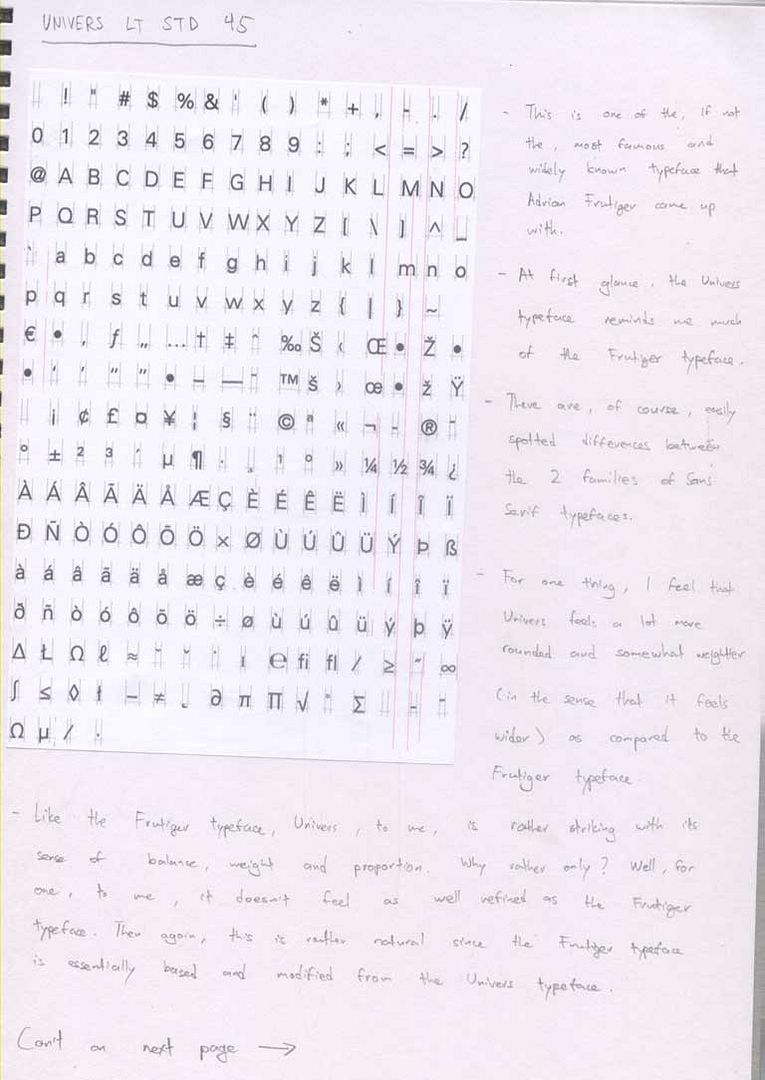 UNIVERS LT STD 45
! " # $ % & ' ( ) * + , - . /
0 1 2 3 4 5 6 7 8 9 : ; < = > ?
@ A B C D E F G H I J K L M N O
P Q R S T U V W X Y Z [ \ ] ^ _
` a b c d e f g h i j k l m n o
p q r s t u v w x y z { | } ~
€ • ‚ ƒ „ … † ‡ ˆ ‰ Š ‹ Œ • Ž •
• ‘ ’ “ ” • – — ˜ ™ š › œ • ž Ÿ
¡ ¢ £ ¤ ¥ ¦ § ¨ © ª « ¬ - ® ¯
° ± ² ³ ´ µ ¶ · ¸ ¹ º » ¼ ½ ¾ ¿
À Á Â Ã Ä Å Æ Ç È É Ê Ë Ì Í Î Ï
Ð Ñ Ò Ó Ô Õ Ö × Ø Ù Ú Û Ü Ý Þ ß
à á â ã ä å æ ç è é ê ë ì í î ï
ð ñ ò ó ô õ ö ÷ ø ù ú û ü ý þ ÿ
Δ Ł Ω ℓ ≈ ˘ ˇ ˙ ı ℮ fi fl ⁄ ≥ ˝ ∞
∫ ≤ ◊ ł − ≠ ˛ ∂ π ∏ √ ˚ Σ - ¯
Ω μ ∕ ·
- This is one of the, if not
the, most famous and
widely known typeface that
Adrian Frutiger came up
with.
- At first glance, the Univers
typeface reminds me much
of the Frutiger typeface.
- There are, of course, easily
spotted differences between
the 2 families of Sans
Serif typefaces.
- For one thing, I feel that
Univers feels a lot more
rounded and somewhat weightier
(in the sense that it feels
wider) as compared to the
Frutiger typeface
- Like the Frutiger typeface, Univers, to me, is rather striking with its
sense of balance, weight and proportion. Why rather only? Well, for
one, to me, it doesn't feel as well refined as the Frutiger
typeface. Then again, this is rather natural since the Frutiger typeface
is essentially based and modified from the Univers typeface.
Con't on next page →